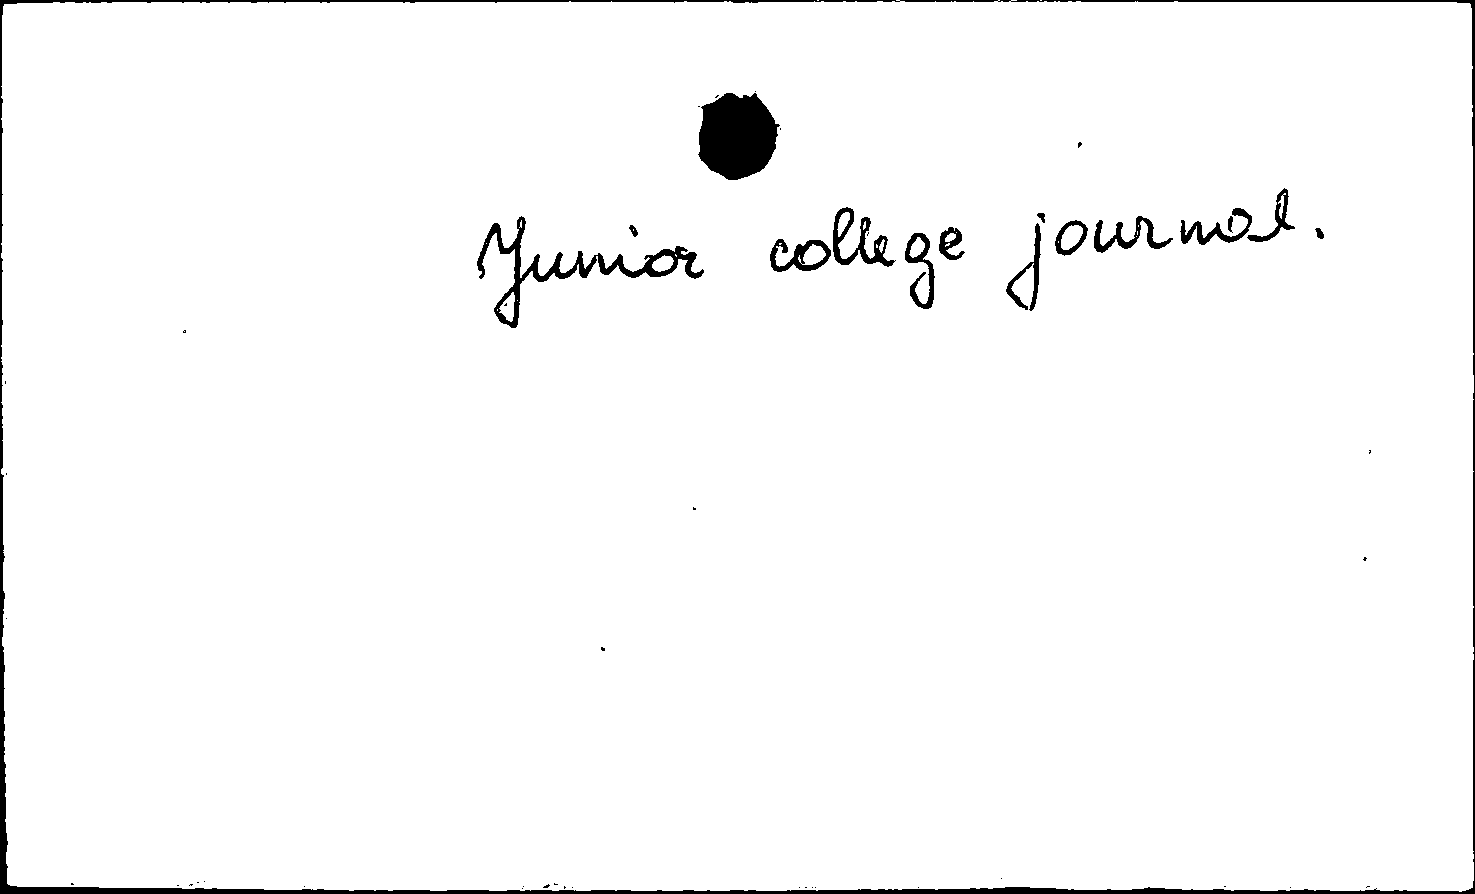 Junior college journal.